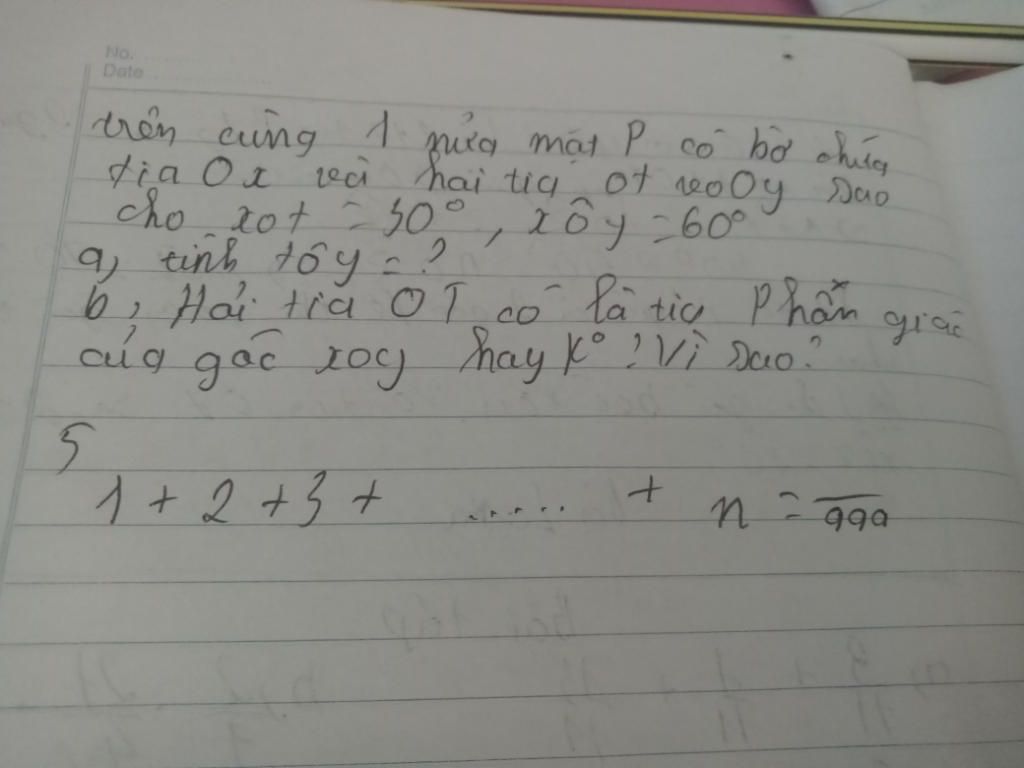 No.
Date
trên cùng 1 nửa mặt P có bờ chứa
tia Ox vẽ hai tia ot vàOy sao
cho xot = 30°, xôy = 60°
a, tính tôy = ?
b, Hỏi tia OT có là tia Phân giác
của góc xoy hay k° ? Vì sao?
5
1 + 2 + 3 + ...... + n = aaa